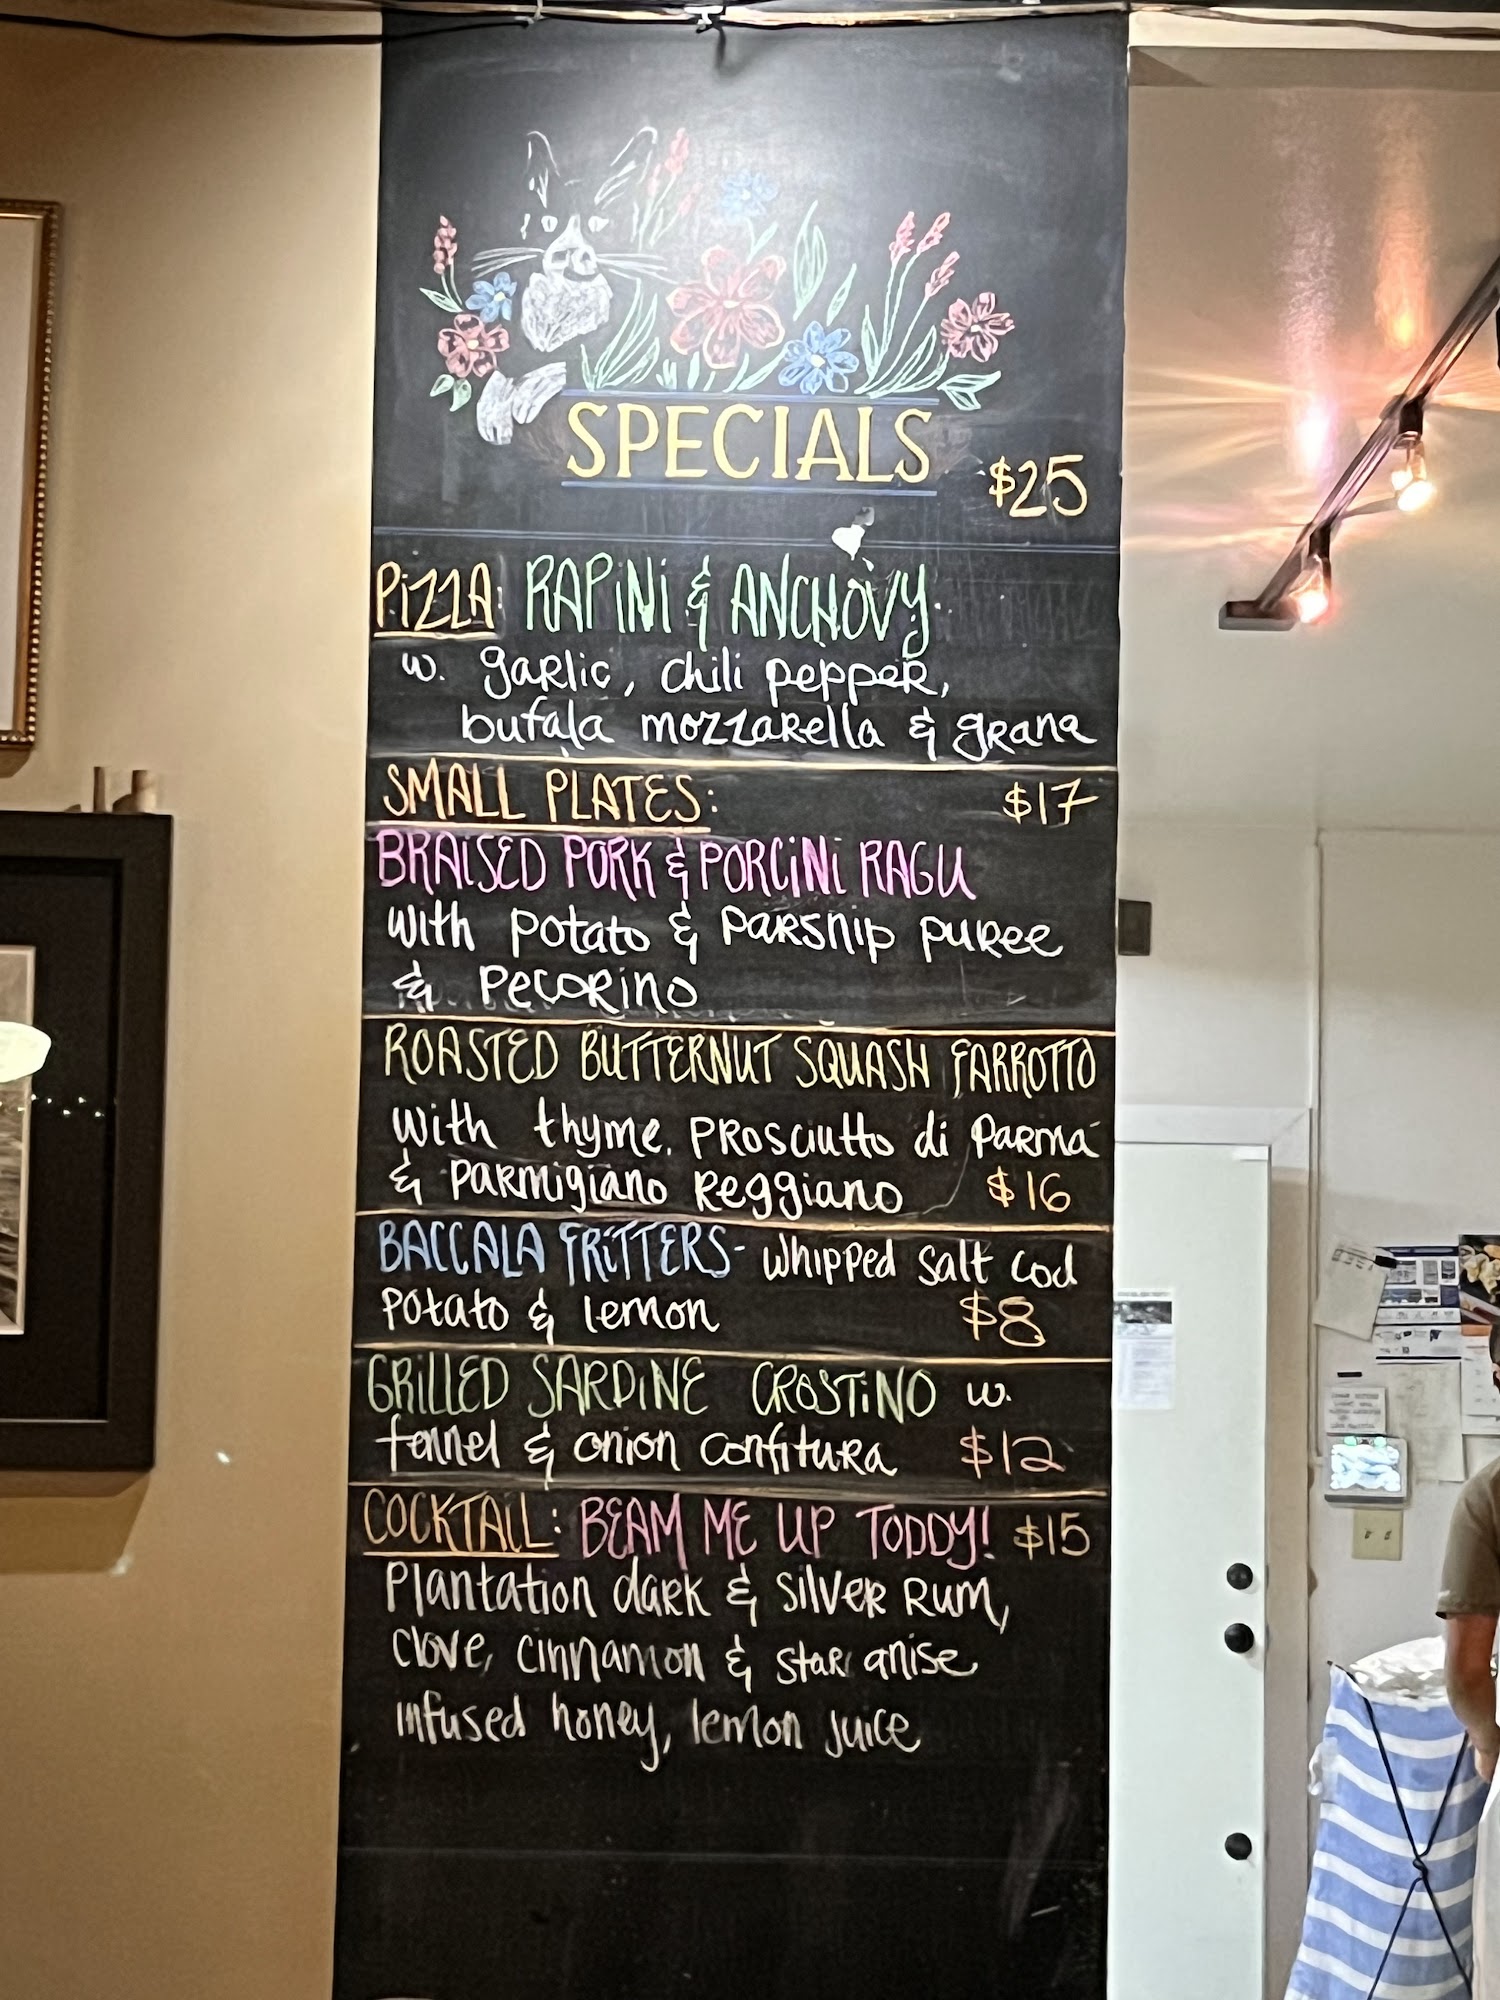 SPECIALS
$25
PiZZA: RAPiNi & ANCHOVY
w. garlic, chili pepper,
bufala mozzarella & grana
SMALL PLATES: $17
BRAiSED PORK & PORCiNi RAGU
with potato & parsnip puree
& pecorino
ROASTED BUTTERNUT SQUASH FARROTTO
with thyme, prosciutto di parma
& parmigiano reggiano $16
BACCALA FRiTTERS- whipped salt cod
potato & lemon $8
GRiLLED SARDiNE CROSTiNO w.
fennel & onion confitura $12
COCKTAiL: BEAM ME UP TODDY! $15
Plantation dark & silver rum,
clove, cinnamon & star anise
infused honey, lemon juice